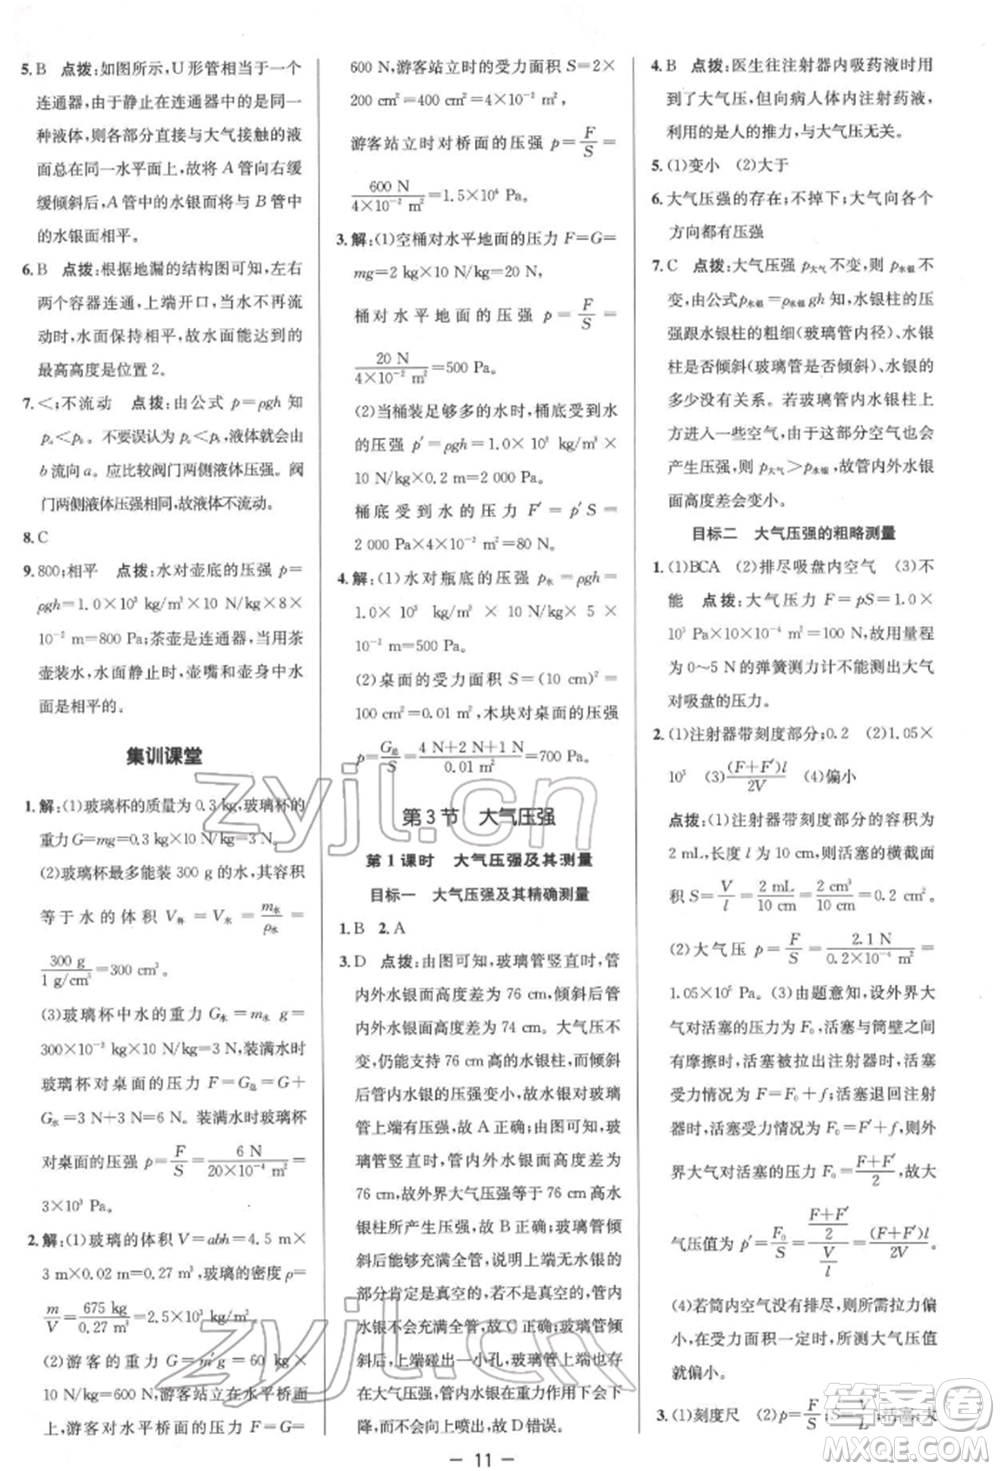 5. B 点拨:如图所示,U 形管是一个
连通器,由于静止在连通器中的同
一种液体,各部分直接与大气接触的液
面总在同一水平面上,故将 A 管向右缓
缓倾斜后,A 管中的水银面将与 B 管中
的水银面相平。
6. B 点拨:根据地漏的结构图可知,左右
两个容器连通,上端开口,当水不流
动时,水面保持相平,故水面能达到的
最高高度是位置 2。
7. <;不流动 点拨:由公式 p=ρgh 知
pₐ<p_b。不要误认为 pₐ<p_b,液体就由
b 流向 a。应比较阀门两侧液体压强。阀
门两侧液体压强相同。故液体不流动。
8. C
9. 800;相平 点拨:水对壶底的压强 p=
ρgh=1.0×10³ kg/m³×10 N/kg×8×
10⁻² m=800 Pa;茶壶是连通器,当用茶
壶装水,水面静止时,壶嘴和壶身中水
面是相平的。
集训课堂
1. 解:(1)玻璃杯的质量为 0.3 kg,玻璃杯的
重力 G=mg=0.3 kg×10 N/kg=3 N。
(2)玻璃杯中最多能装 300 g 的水,其容积
等于水的体积 V杯=V水=m水/ρ水=
300 g/1 g/cm³=300 cm³。
(3)玻璃杯中水的重力 G水=m水 g=
300×10⁻³ kg×10 N/kg=3 N;装满水时
玻璃杯对桌面的压力 F=G总=G+
G水=3 N+3 N=6 N。装满水时玻璃杯
对桌面的压强 p=F/S=6 N/20×10⁻⁴ m²=
3×10³ Pa。
2. 解:(1)玻璃的体积 V=abh=4.5 m×
3 m×0.02 m=0.27 m³,玻璃的密度 ρ=
m/V=675 kg/0.27 m³=2.5×10³ kg/m³。
(2)游客的重力 G=m′g=60 kg×
10 N/kg=600 N,游客站立在水平桥面
时对水平桥面的压力 F=G=
600 N,游客站立时的受力面积 S=2×
200 cm²=400 cm²=4×10⁻² m²,
游客站立时对桥面的压强 p=F/S=
600 N/4×10⁻² m²=1.5×10⁴ Pa。
3. 解:(1)空桶对水平地面的压力 F=G=
mg=2 kg×10 N/kg=20 N,
桶对水平地面的压强 p=F/S=
20 N/4×10⁻² m²=500 Pa。
(2)当桶装足够多的水时,桶底受到水
的压强 p′=ρgh=1.0×10³ kg/m³×
10 N/kg×0.2 m=2 000 Pa,
桶底受到水的压力 F′=p′S=
2 000 Pa×4×10⁻² m²=80 N。
4. 解:(1)水对瓶底的压强 p水=ρ水gh=
1.0×10³ kg/m³×10 N/kg×5×
10⁻² m=500 Pa。
(2)桌面的受力面积 S=(10 cm)²=
100 cm²=0.01 m²,木块对桌面的压强
p=G总/S=4 N+2 N+1 N/0.01 m²=700 Pa。
第 3 节 大气压强
第 1 课时 大气压强及其测量
目标一 大气压强及其精确测量
1. B 2. A
3. D 点拨:由图可知,玻璃管竖直时,管
内外水银面高度差为 76 cm,倾斜后管
内外水银面高度差为 74 cm。大气压不
变,仍能支持 76 cm 高的水银柱,而倾斜
后高度变小,说明是水银对玻璃
管上端有压强,故 A 正确;由图可知,玻
璃管竖直时,管内外水银面高度差为
76 cm,故此时大气压强与 76 cm 高水
银柱所产生压强,故 B 正确;
倾斜后能够充满全管,故竖直时上
部肯定是真空,若不是真空,则管内
水银不可能充满全管,故 C 正确;
若在管上端碰出一小孔,玻璃
管内外都受到大气压的作用,管内水银在重力作用下
会向下流出,不会向上喷出,故 D 错误。
4. B 点拨:医生往注射器内吸药液时用
到了大气压,但向病人体内注射药液,
利用的是人的推力,与大气压无关。
5. (1)变小 (2)大于
6. 大气压强的存在;不掉下;大气向各个
方向都有压强
7. C 点拨:大气压强 p大气 不变,则 p水银 不
变,由公式 p水银=ρ水银gh 知,水银柱的压
强跟水银柱的粗细(玻璃管内径)、水银
柱是否倾斜(玻璃管是否倾斜)、水银的
多少没有关系。若玻璃管内水银柱上方
进入一些空气,由于这部分空气也会
产生压强,则 p大气>p水银,故管内外水银
面高度差会变小。
目标二 大气压强的粗略测量
1. (1)BCA (2)排尽吸盘内空气 (3)不
能 点拨:大气压力 F=pS=1.0×
10⁵ Pa×10×10⁻⁴ m²=100 N,故用量程
为 0～5 N 的弹簧测力计不能测出大气
对吸盘的压力。
2. (1)注射器带刻度部分;0.2 (2)1.05×
10⁵ (3)(F+F′)l/2V (4)偏小
点拨:(1)注射器带刻度部分的容积为
2 mL,长度为 10 cm,所以活塞的横截面
积 S=V/l=2 mL/10 cm=2 cm³/10 cm=0.2 cm²。
(2)大气压 p=F/S=2.1 N/0.2×10⁻⁴ m²=
1.05×10⁵ Pa。(3)由题意知,设外界大
气对活塞的压力为 F₀,活塞与筒壁之间
有摩擦时,活塞被拉出注射器时,活塞
受力情况为 F=F₀+f;活塞退回注射
器时,活塞受力情况为 F₀=F′+f,则外
界大气对活塞的压力 F₀=F+F′/2,故大
气压值为 p′=F₀/S=(F+F′/2)/(V/l)=(F+F′)l/2V。
(4)若筒内空气没有排尽,则拉力偏
小,在受力面积一定时,所测大气压值
就偏小。
3. (1)刻度尺 (2)p=F/S;S=V/L;活塞;大
— 11 —
zyjl.cn
zyjl.cn
答案圈
MXQE.COM